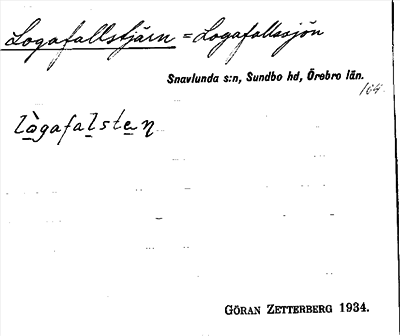 Logafallstjärn = Logafallssjön
Snavlunda s:n, Sundbo hd, Örebro län.
164.
lògafalsten
GÖRAN ZETTERBERG 1934.